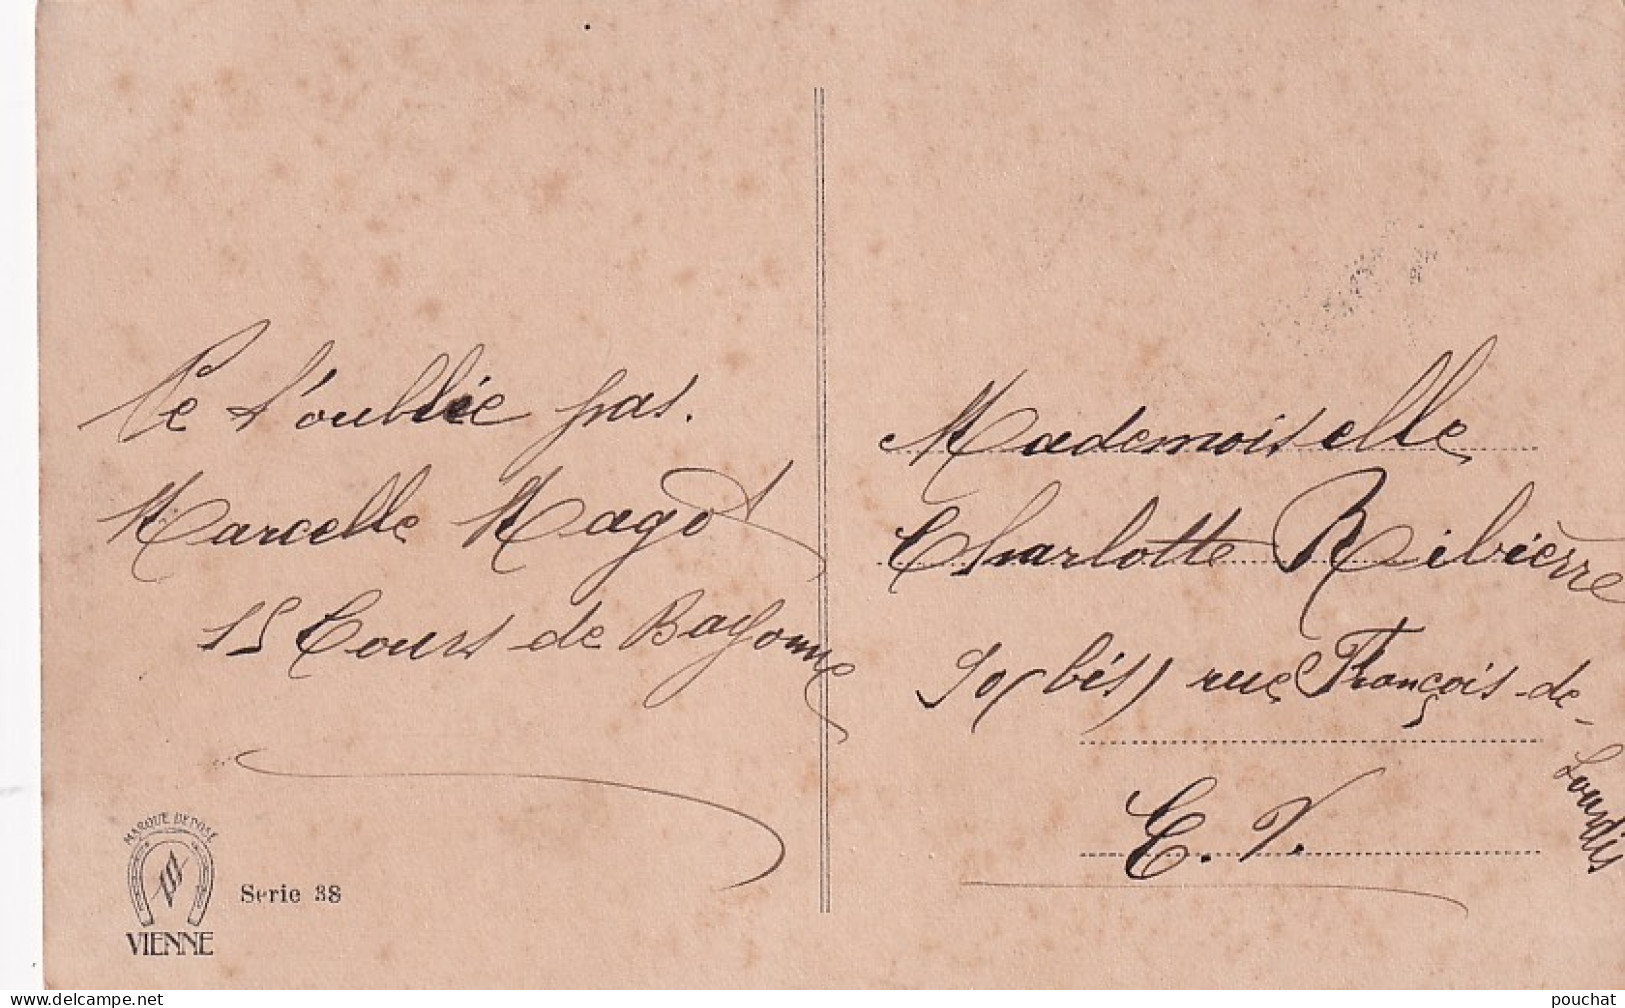 Ne t'oublie pas.
Marcelle Magot
15 Cours de Bayonne
MARQUE DEPOSÉ
VIENNE
Serie 38
Mademoiselle
Charlotte Ribière
90 (bis) rue François-de-
Sourdis
E. V.
delcampe.net
pouchat